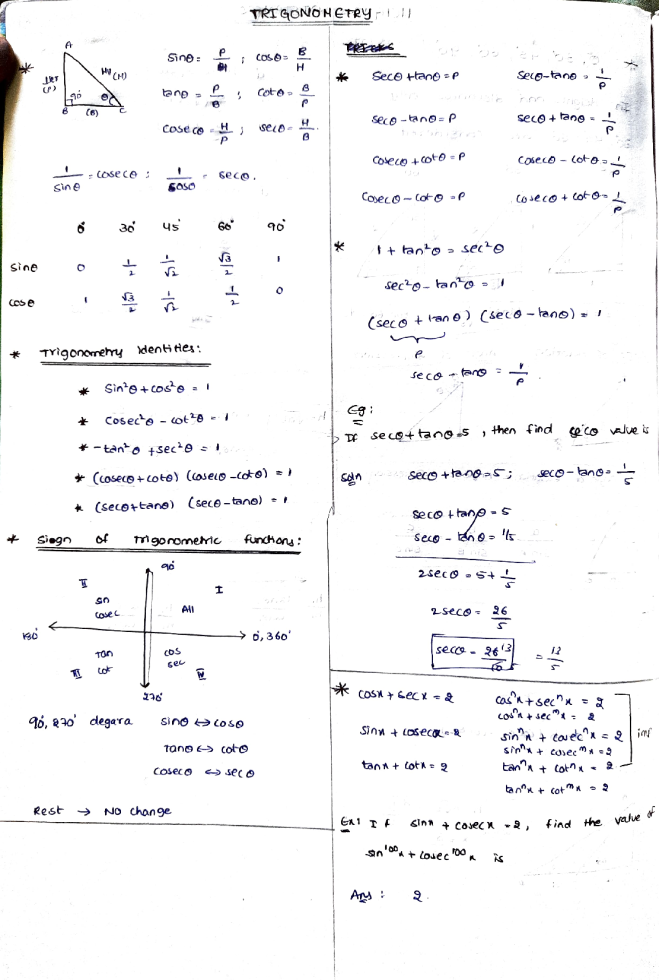 TRIGONOMETRY - 1.11
* A
Hy (H)
(P)
90° θ
B (B) C
Sinθ = P/H ; cosθ = B/H
tanθ = P/B ; cotθ = B/P
cosecθ = H/P ; secθ = H/B
1/sinθ = cosecθ ; 1/cosθ = secθ.
0° 30° 45° 60° 90°
sinθ 0 1/2 1/√2 √3/2 1
cosθ 1 √3/2 1/√2 1/2 0
* Trigonometry Identities:
* Sin²θ + cos²θ = 1
* cosec²θ - cot²θ = 1
* -tan²θ + sec²θ = 1
* (cosecθ + cotθ) (cosecθ - cotθ) = 1
* (secθ + tanθ) (secθ - tanθ) = 1
* Siogn of Trigonometric functions:
90°
II I
sn All
cosec
180° 0°, 360°
Tan cos
cot sec
III IV
270°
90°, 270° degara sinθ ↔ cosθ
Tanθ ↔ cotθ
cosecθ ↔ secθ
Rest → No change
* Secθ + tanθ = P secθ - tanθ = 1/P
secθ - tanθ = P secθ + tanθ = 1/P
cosecθ + cotθ = P cosecθ - cotθ = 1/P
Cosecθ - cotθ = P cosecθ + cotθ = 1/P
* 1 + tan²θ = sec²θ
sec²θ - tan²θ = 1
(secθ + tanθ) (secθ - tanθ) = 1
P
secθ - tanθ = 1/P
Eg:
If secθ + tanθ = 5, then find secθ value is
soln secθ + tanθ = 5; secθ - tanθ = 1/5
secθ + tanθ = 5
secθ - tanθ = 1/5
2secθ = 5 + 1/5
2secθ = 26/5
secθ = 26 13/10 5 = 13/5
* cosx + secx = 2 cosⁿx + secⁿx = 2
cosⁿx + secᵐx = 2
sinx + cosecx = 2 sinⁿx + cosecⁿx = 2 imp
sinⁿx + cosecᵐx = 2
tanx + cotx = 2 tanⁿx + cotⁿx = 2
tanⁿx + cotᵐx = 2
Ex: If sinx + cosecx = 2, find the value of
sin¹⁰⁰x + cosec¹⁰⁰x is
Ans: 2.